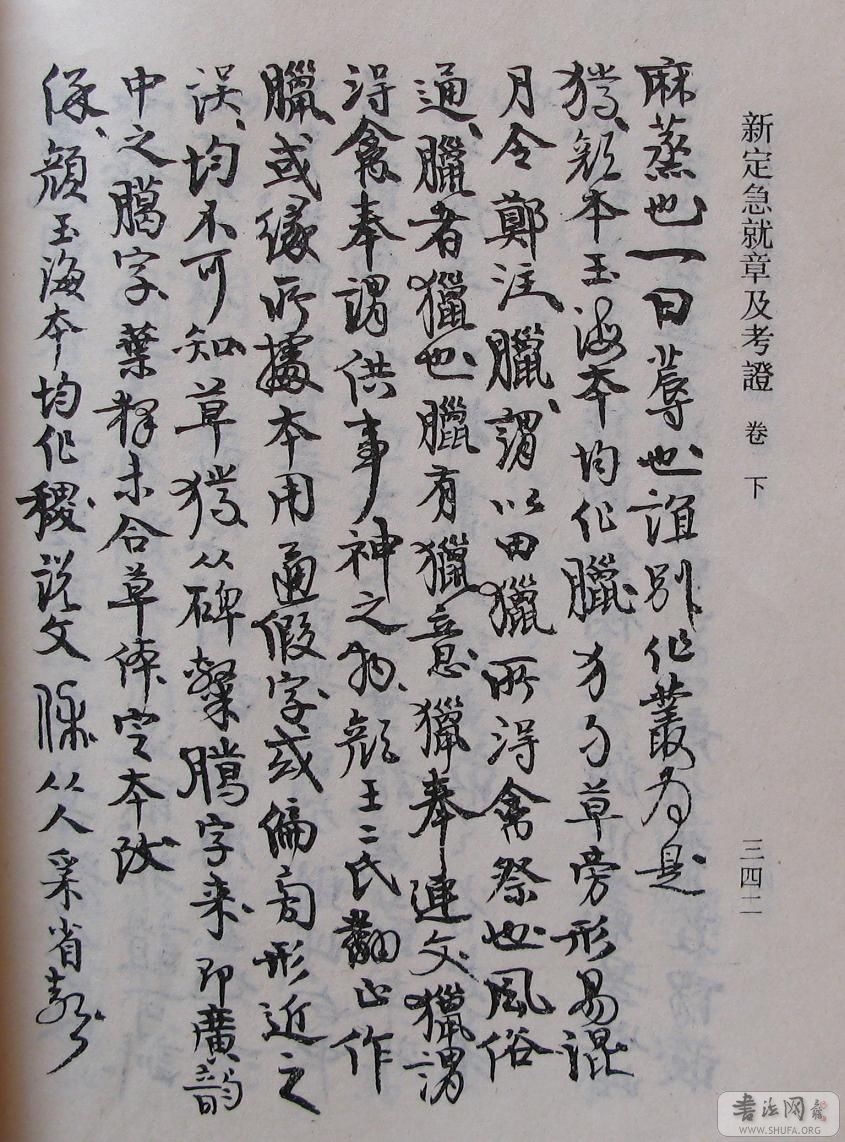 新定急就章及考證 卷下
三四二
麻蒸也一曰蓐也誼別作叢為是
獵顏本玉海本均作臘草旁形易混
月令鄭注臘謂以田獵所得禽祭也風俗
通臘者獵也臘有獵意獵奉連文獵謂
得禽奉謂供事神之物顏王二氏作
臘或緣所據本用通假字或偏旁形近之
誤均不可知草獵从碑字來即廣韵
中之字葉釋未合草体定本改
係顏玉海本均作稷說文从人省
書法网
WWW.SHUFA.ORG